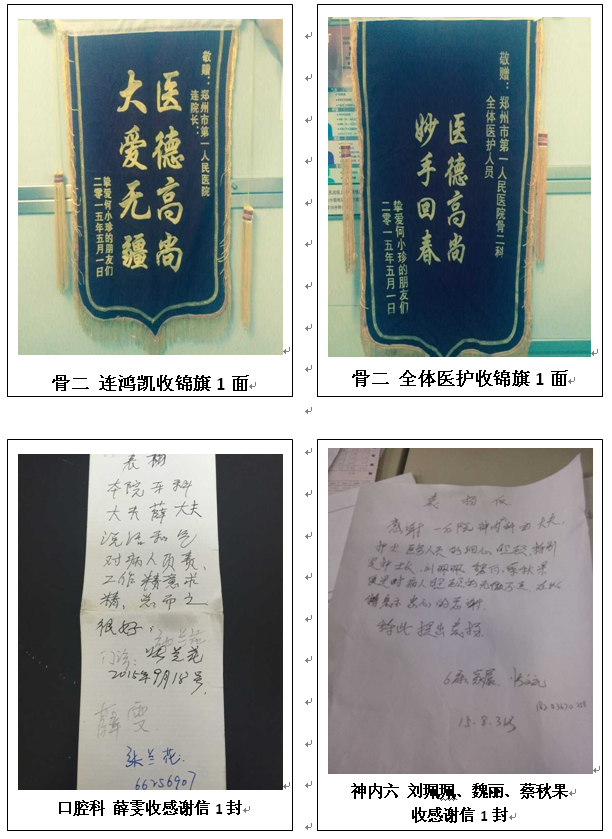 敬赠：郑州市第一人民医院
连院长：
医德高尚
大爱无疆
挚爱何小珍的朋友们
二零一五年五月一日
骨二 连鸿凯收锦旗1面
敬赠：郑州市第一人民医院骨二科
全体医护人员
医德高尚
妙手回春
挚爱何小珍的朋友们
二零一五年五月一日
骨二 全体医护收锦旗1面
表扬
本院牙科
大夫薛大夫
说话和气
对病人负责,
工作精意求
精，总而之
很好，
门诊：张兰花
2015年9月18号,
薛雯
张兰花
66256907
口腔科 薛雯收感谢信1封
表扬信
感谢一百院神内科的大夫、
护士
特此提出表扬
神内六 刘珮珮、魏丽、蔡秋果
收感谢信1封